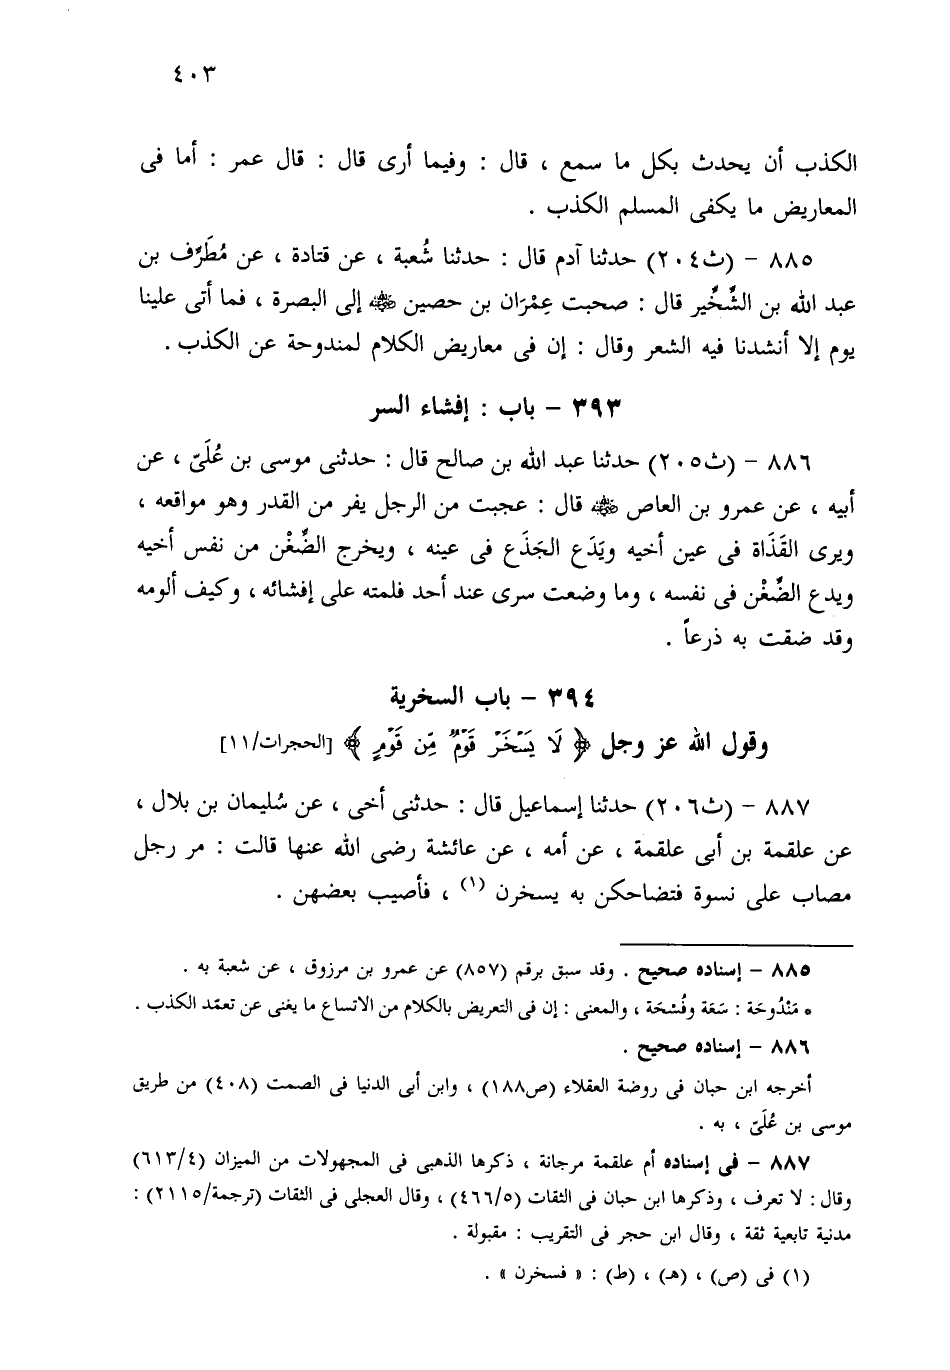 ٤٠٣
الكذب أن يحدث بكل ما سمع ، قال : وفيما أرى قال : قال عمر : أما فى
المعاريض ما يكفى المسلم الكذب .
٨٨٥ – (ث٢٠٤) حدثنا آدم قال : حدثنا شُعبة ، عن قتادة ، عن مُطَرِّف بن
عبد الله بن الشِّخِّير قال : صحبت عِمْرَان بن حصين ﷺ إلى البصرة ، فما أتى علينا
يوم إلا أنشدنا فيه الشعر وقال : إن فى معاريض الكلام لمندوحة عن الكذب .
٣٩٣ – باب : إفشاء السر
٨٨٦ – (ث٢٠٥) حدثنا عبد الله بن صالح قال : حدثنى موسى بن عُلَىّ ، عن
أبيه ، عن عمرو بن العاص ﷺ قال : عجبت من الرجل يفر من القدر وهو مواقعه ،
ويرى القَذَاة فى عين أخيه ويَدَع الجَذَع فى عينه ، ويخرج الضِّغْن من نفس أخيه
ويدع الضِّغْن فى نفسه ، وما وضعت سرى عند أحد فلمته على إفشائه ، وكيف ألومه
وقد ضقت به ذرعاً .
٣٩٤ – باب السخرية
وقول الله عز وجل ﴿ لَا يَسْخَرْ قَوْمٌ مِّن قَوْمٍ ﴾ [الحجرات/١١]
٨٨٧ – (ث٢٠٦) حدثنا إسماعيل قال : حدثنى أخى ، عن سُليمان بن بلال ،
عن علقمة بن أبى علقمة ، عن أمه ، عن عائشة رضى الله عنها قالت : مر رجل
مصاب على نسوة فتضاحكن به يسخرن (١) ، فأصيب بعضهن .
٨٨٥ – إسناده صحيح . وقد سبق برقم (٨٥٧) عن عمرو بن مرزوق ، عن شعبة به .
• مَنْدُوحَة : سَعَة وفُسْحَة ، والمعنى : إن فى التعريض بالكلام من الاتساع ما يغنى عن تعمّد الكذب .
٨٨٦ – إسناده صحيح .
أخرجه ابن حبان فى روضة العقلاء (ص١٨٨) ، وابن أبى الدنيا فى الصمت (٤٠٨) من طريق
موسى بن عُلَىّ ، به .
٨٨٧ – فى إسناده أم علقمة مرجانة ، ذكرها الذهبى فى المجهولات من الميزان (٦١٣/٤)
وقال : لا تعرف ، وذكرها ابن حبان فى الثقات (٤٦٦/٥) ، وقال العجلى فى الثقات (ترجمة/٢١١٥) :
مدنية تابعية ثقة ، وقال ابن حجر فى التقريب : مقبولة .
(١) فى (ص) ، (هـ) ، (ط) : « فسخرن » .